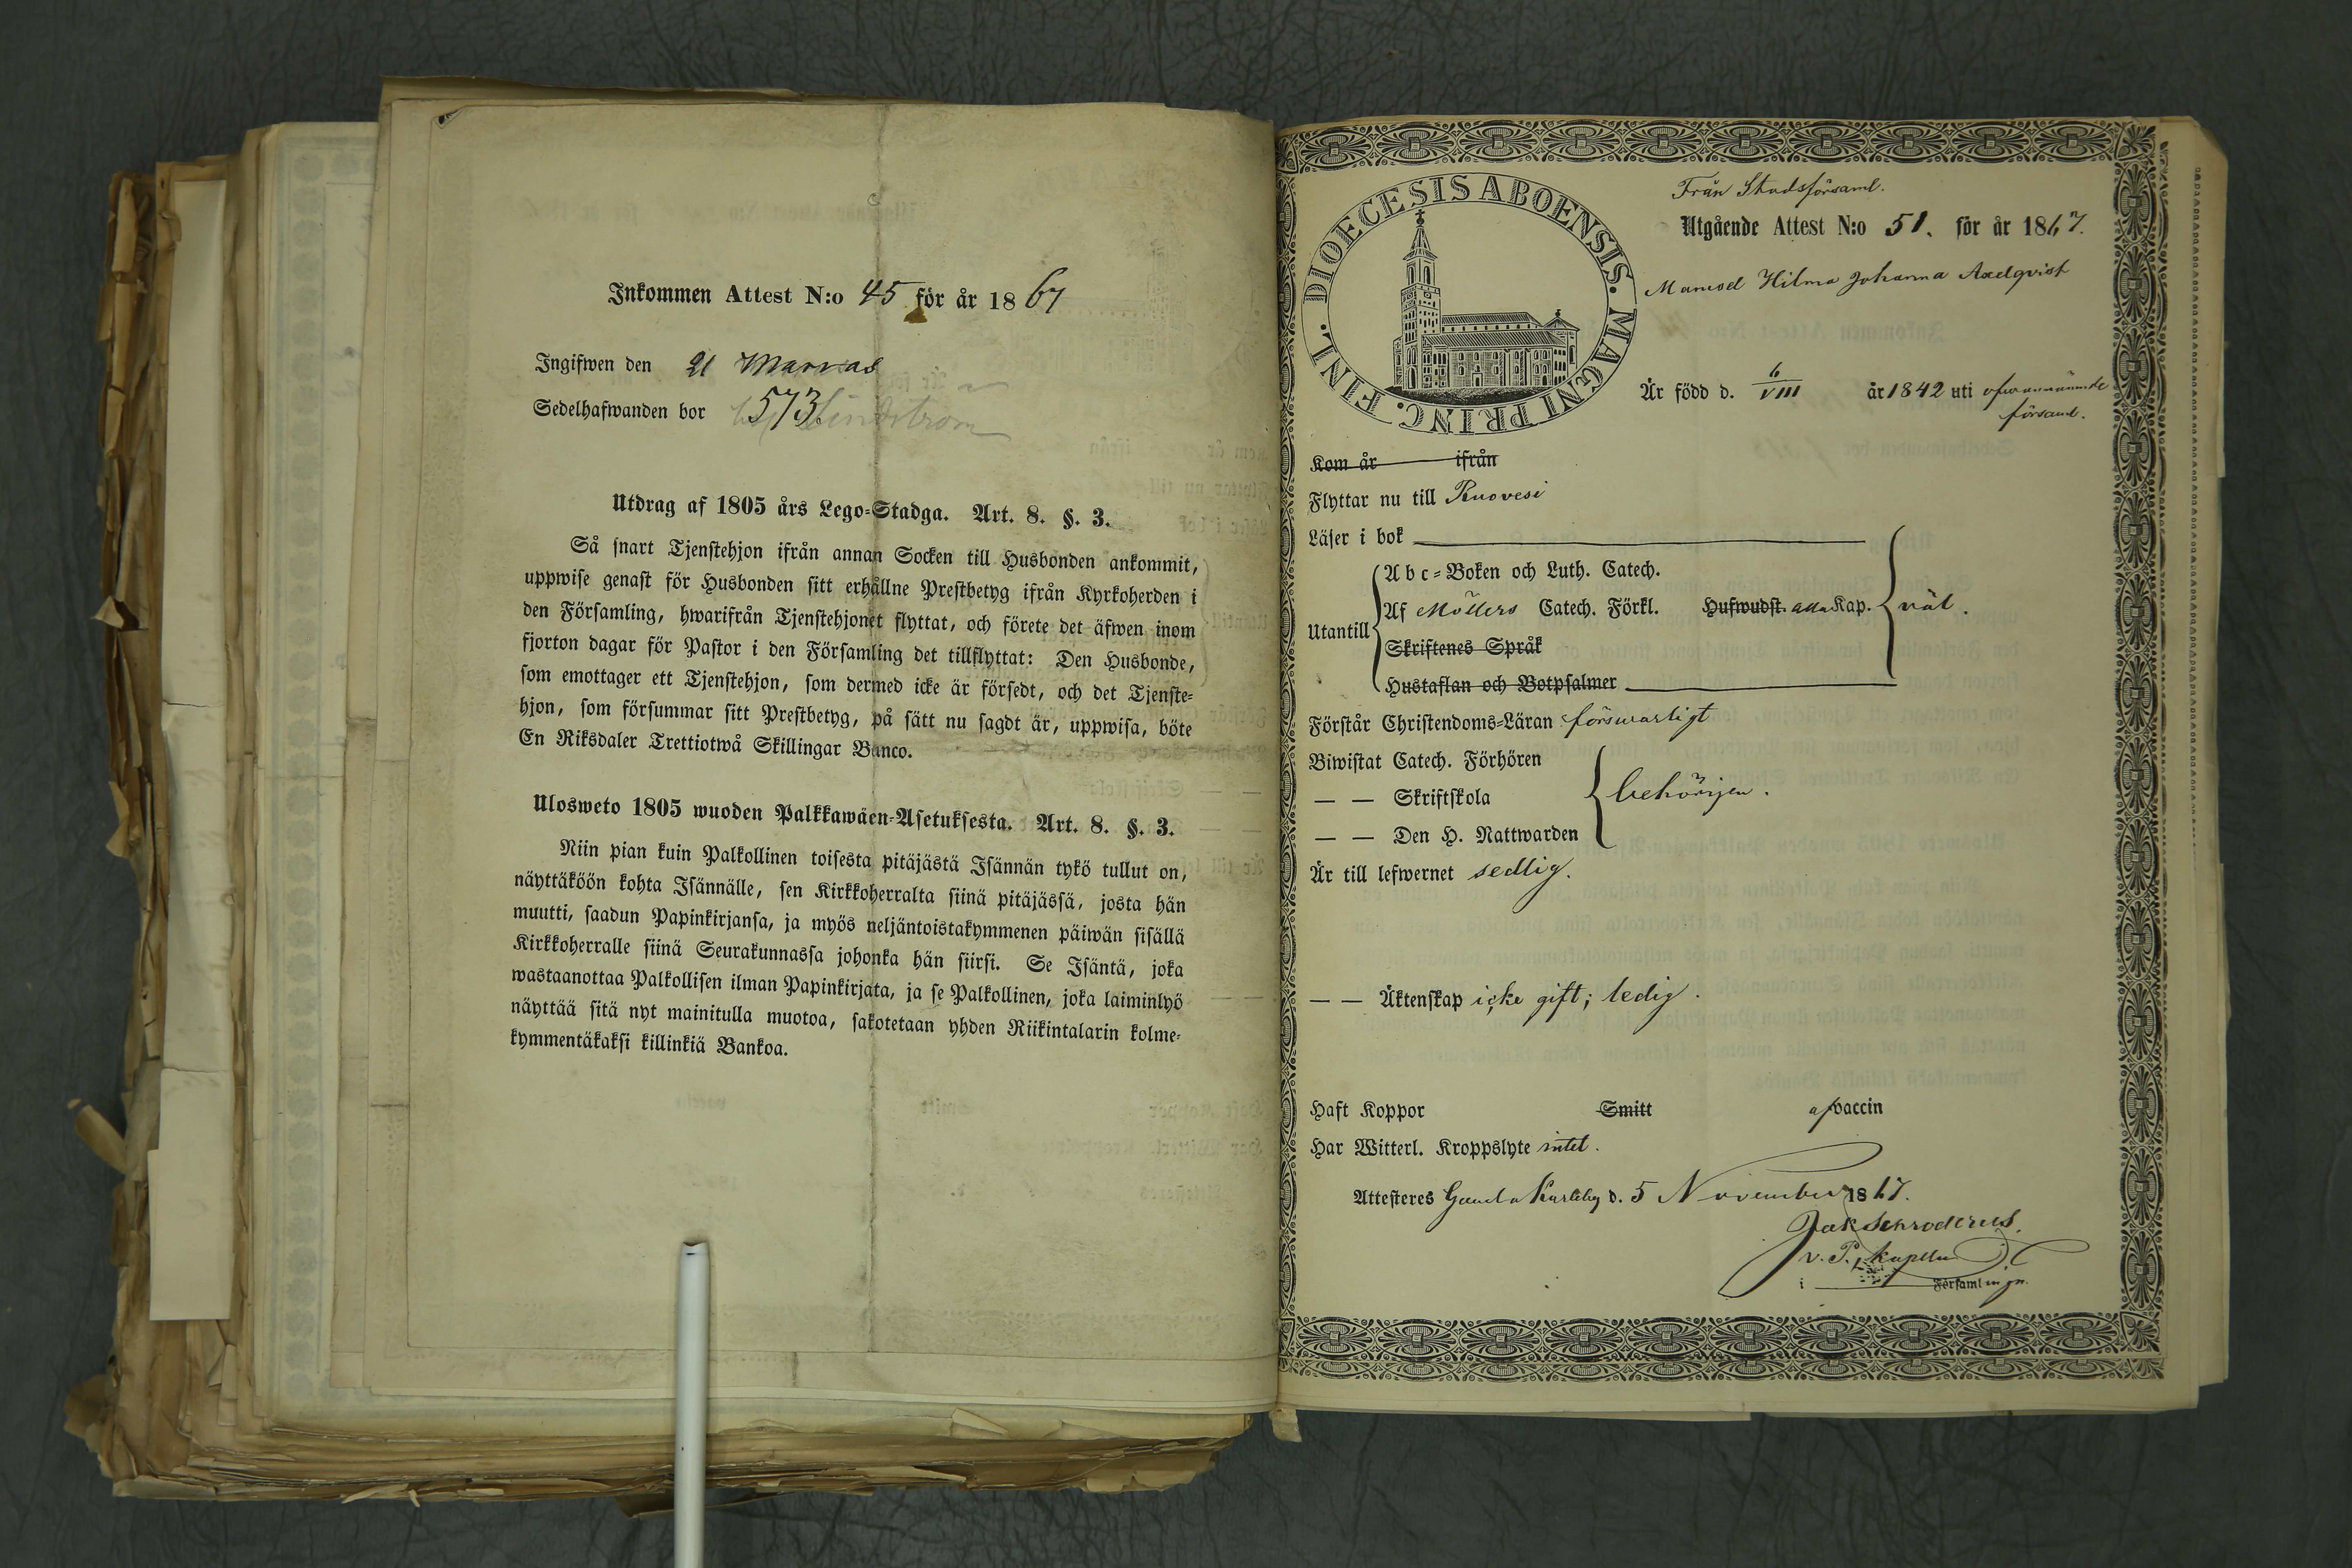 Inkommen Attest N:o 45 för år 1867
Ingifwen den 21
Sedelhafwanden bor 573. Lindström
Utdrag af 1805 års Lego-Stadga. Art. 8. §. 3.
Så snart Tjenstehjon ifrån annan Socken till Husbonden ankommit,
uppwise genast för Husbonden sitt erhållne Prestbetyg ifrån Kyrkoherden i
den Församling, hwarifrån Tjenstehjonet flyttat, och förete det äfwen inom
fjorton dagar för Pastor i den Församling det tillflyttat: Den Husbonde,
som emottager ett Tjenstehjon, som dermed icke är försedt, och det Tjenste-
hjon, som försummar sitt Prestbetyg, på sätt nu sagdt är, uppwisa, böte
En Riksdaler Trettiotwå Skillingar Banco.
Ulosweto 1805 wuoden Palkkawäen-Asetuksesta. Art. 8. §. 3.
Niin pian kuin Palkollinen toisesta pitäjästä Isännän tykö tullut on,
näyttäköön kohta Isännälle, sen Kirkkoherralta siinä pitäjässä, josta hän
muutti, saadun Papinkirjansa, ja myös neljäntoistakymmenen päiwän sisällä
Kirkkoherralle siinä Seurakunnassa johonka hän siirsi. Se Isäntä, joka
wastaanottaa Palkollisen ilman Papinkirjata, ja se Palkollinen, joka laiminlyö
näyttää sitä nyt mainitulla muotoa, sakotetaan yhden Riikintalarin kolme-
kymmentäkaksi killinkiä Bankoa.
DIOECESIS ABOENSIS. MAGNI PRINC. FINL.
Från Stadsförsaml.
Utgående Attest N:o 51. för år 1867.
Mamsel Hilma Johanna Axelqvist
Är född d. 6/VIII år 1842 uti ofwannämnde
församl.
Kom år ifrån
Flyttar nu till Ruovesi
Läser i bok
Abc-Boken och Luth. Catech.
Af Möllers Catech. Förkl. Hufwudst. alla Kap. väl.
Utantill
Skriftenes Språk
Hustaflan och Botpsalmer
Förstår Christendoms-Läran förswarligt
Biwistat Catech. Förhören
— — Skriftskola behörigen.
— — Den H. Nattwarden
Är till lefwernet sedlig.
— — Äktenskap icke gift; ledig.
Haft Koppor Smitt af vaccin
Har Witterl. Kroppslyte intet.
Attesteres Gamla Karleby d. 5 November 1867.
Jak Schroderus.
v. P. kaplan
i Församlingn.